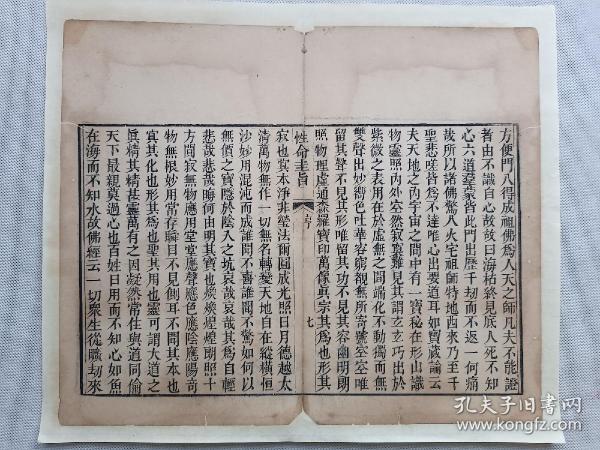 方便門入得成祖佛爲人天之師凡夫不能證
者由不識自心故故曰海枯終見底人死不知
心六道羣蒙皆此門出歷千劫而不返一何痛
哉所以諸佛驚入火宅祖師特地西來乃至千
聖悲嗟皆爲不達唯心出要道耳如寶藏論云
夫天地之內宇宙之間中有一寶秘在形山識
物靈照內外空然寂寞難見其謂玄玄巧出於
紫微之表用在於虛無之間端化不動獨而無
雙聲出妙響色吐華容窮覩無所寄號空空唯
留其聲不見其形唯留其功不見其容幽明朗
照物理虛通森羅寶印萬像眞宗其爲也形其
性命圭旨
序
七
寂也冥本淨非瑩法爾圓成光照日月德越太
清萬物無作一切無名轉變天地自在縱橫恒
沙妙用混沌而成誰聞不喜誰聞不驚如何以
無價之寶隱於陰入之坑哀哉哀哉其爲自輕
悲哉悲哉晦何由明其寶也煥煥煌煌朗照十
方闃寂無物應用堂堂應聲應色應陰應陽奇
物無根妙用常存瞬目不見側耳不聞其本也
冥其化也形其爲也聖其用也靈可謂大道之
眞精其精甚靈萬有之因凝然常住與道同倫
天下最親莫過心也百姓日用而不知心如魚
在海而不知水故佛經云一切衆生從曠劫來
孔夫子旧书网
www.kongfz.com